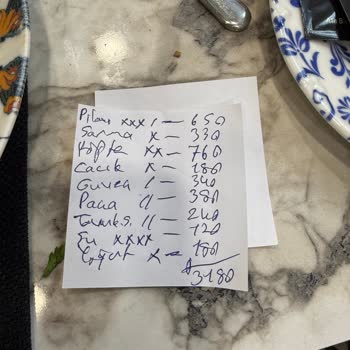 Pilav xxx / — 650
Sarma x — 330
Köfte xx — 760
Cacık x — 180
Güveç / — 340
Paça // — 380
// — 240
Su xxxx — 120
Yoğurt x — 180
3180